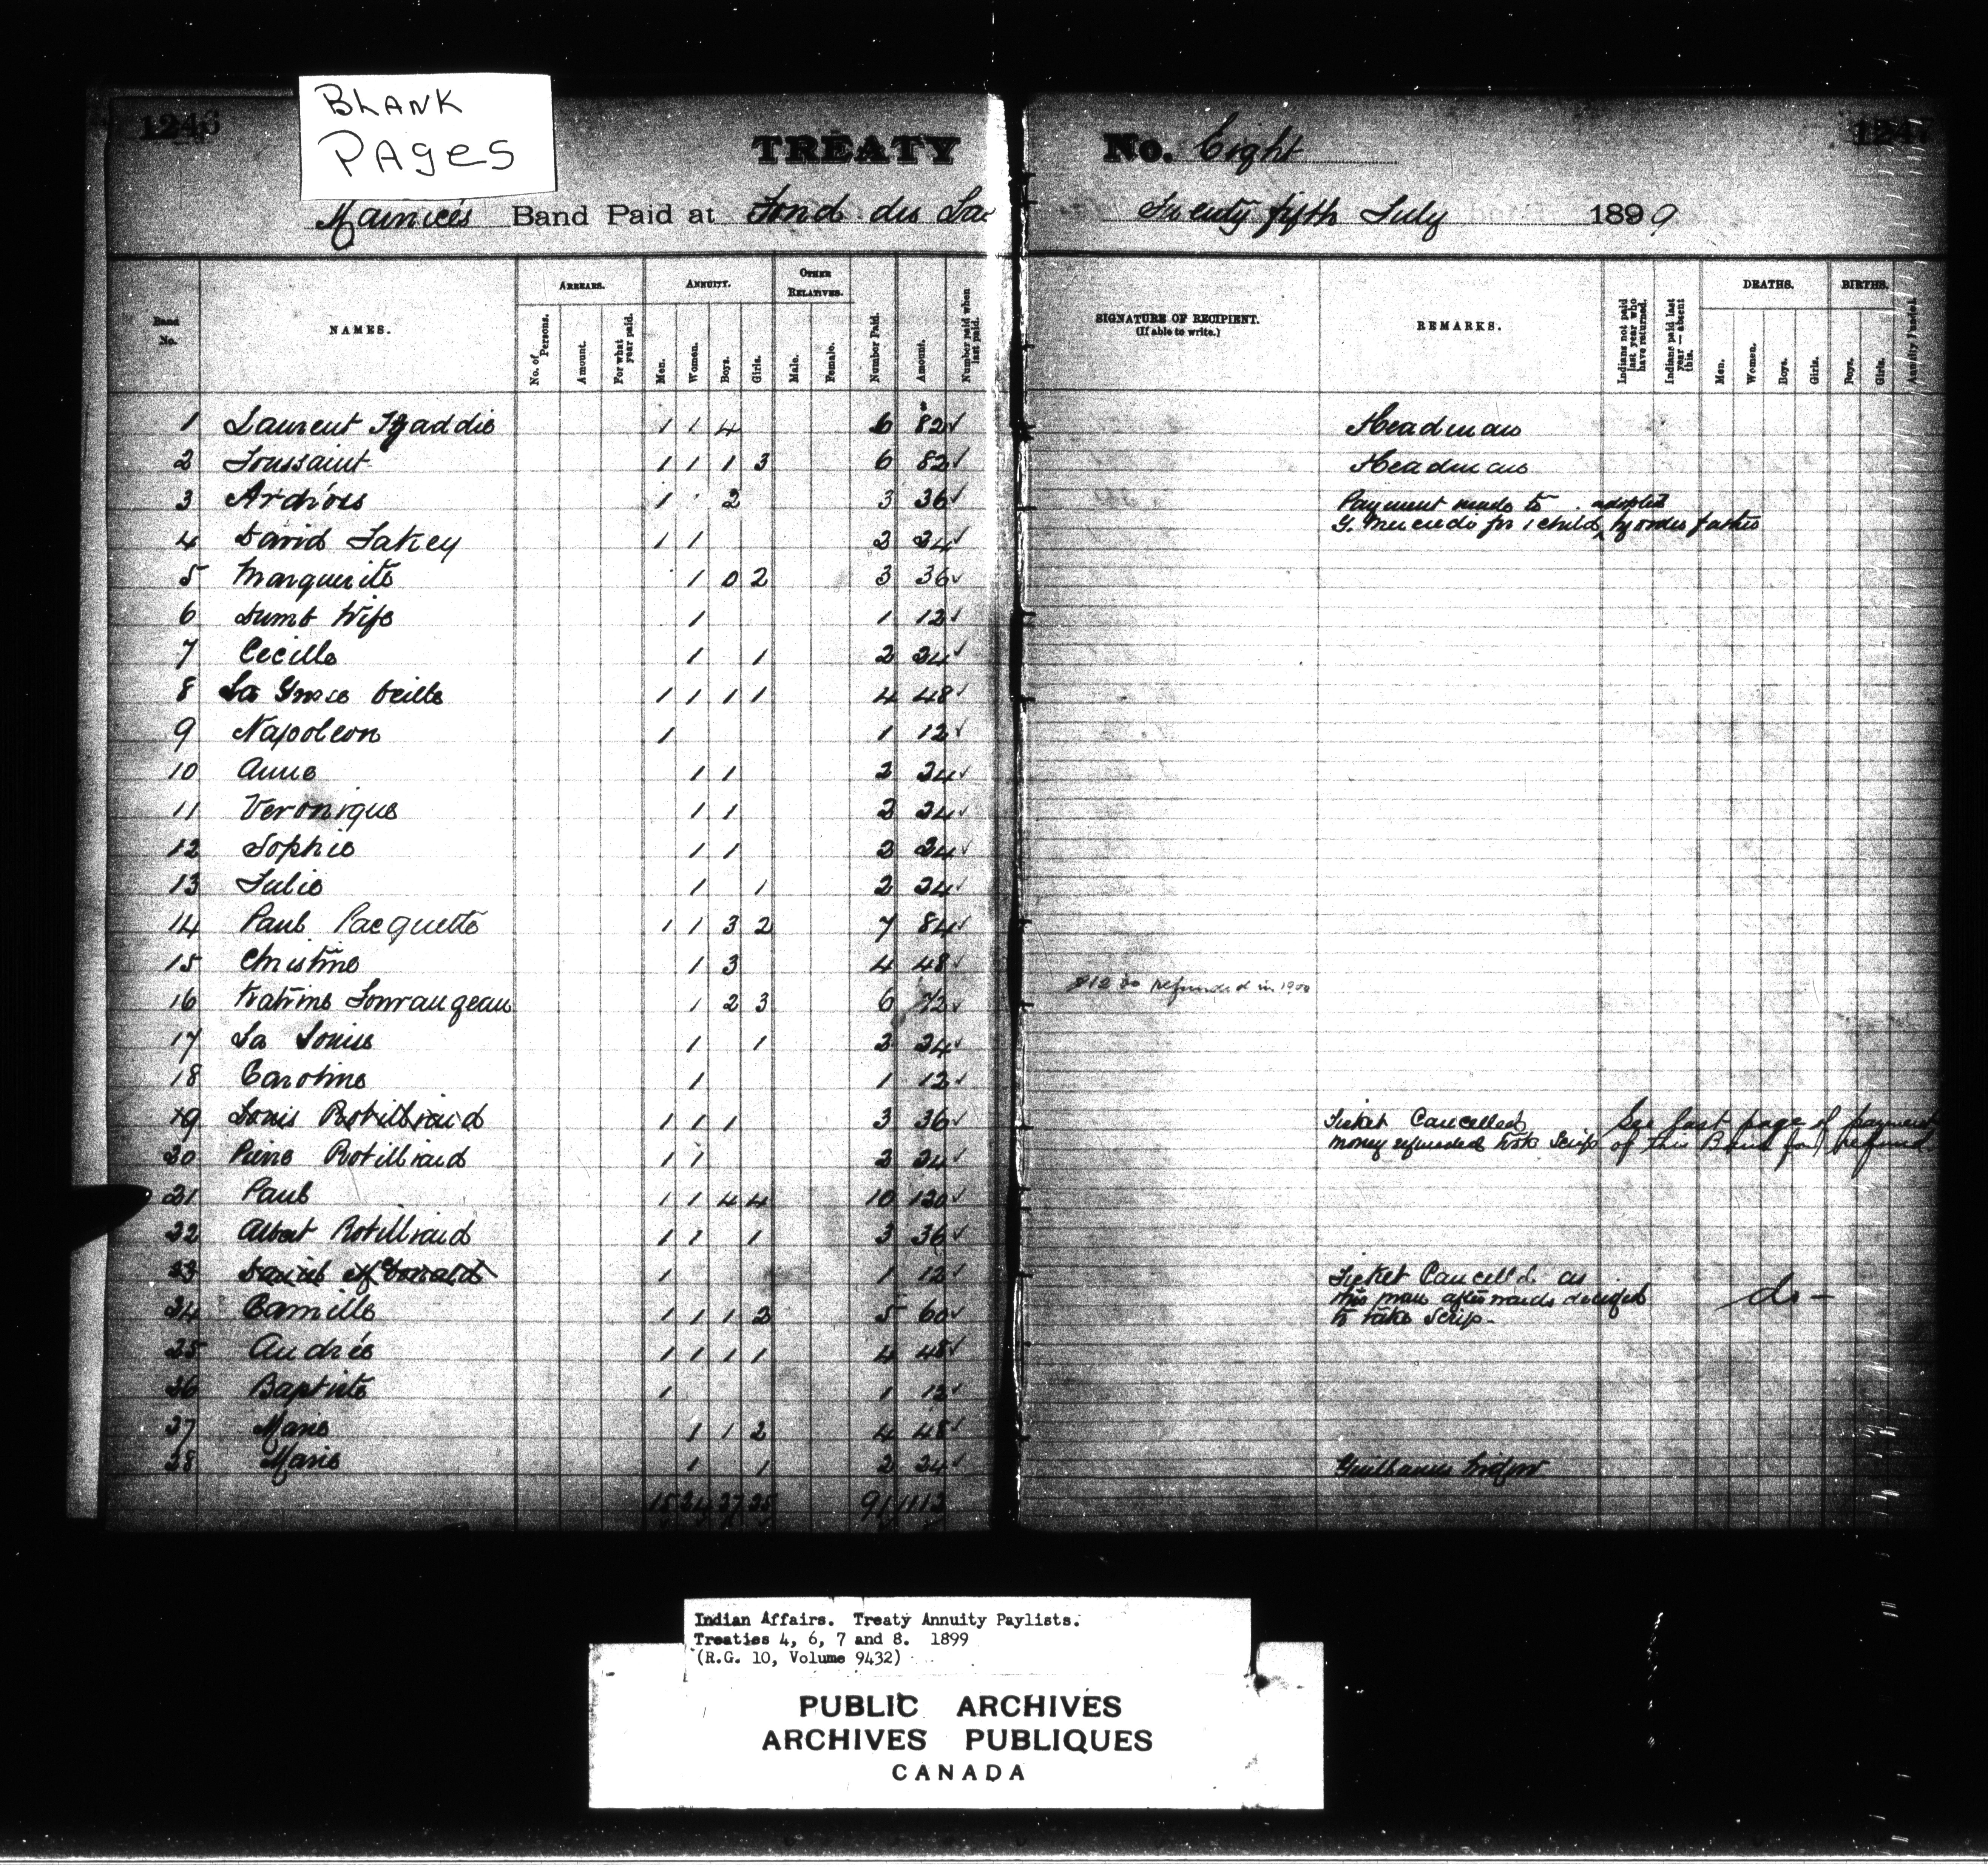 BLANK
PAGES
1246
1247
TREATY No. Eight
Maurice's Band Paid at Fond du Lac Twenty fifth July 1899
Band No.
NAMES.
ARREARS.
No. of Persons.
Amount.
For what year paid.
ANNUITY.
Men.
Women.
Boys.
Girls.
OTHER RELATIVES.
Male.
Female.
Number Paid.
Amount.
Number paid when last paid.
SIGNATURE OF RECIPIENT.
(If able to write.)
REMARKS.
Indians not paid last year who have returned.
Indians paid last year — absent this.
DEATHS.
Men.
Women.
Boys.
Girls.
BIRTHS.
Boys.
Girls.
Annuity Funded.
1 Laurent Dzaddie 1 1 4 6 82 ✓ Headman
2 Toussaint 1 1 1 3 6 82 ✓ Headman
3 1 2 3 36 ✓ Payment made to adopted
for 1 child ^ by order father
4 David 1 1 2 24 ✓
5 Marguerite 1 0 2 3 36 ✓
6 Dumb Wife 1 1 12 ✓
7 Cecille 1 1 2 24 ✓
8 La Grosse Vieille 1 1 1 1 4 48 ✓
9 Napoleon 1 1 12 ✓
10 Anne 1 1 2 24 ✓
11 Veronique 1 1 2 24 ✓
12 Sophie 1 1 2 24 ✓
13 Julie 1 1 2 24 ✓
14 Paul Pacquette 1 1 3 2 7 84 ✓
15 Christine 1 3 4 48 ✓
$12.00 refunded in 1900
16 Katrine Lourangeau 1 2 3 6 72 ✓
17 La Louise 1 1 2 24 ✓
18 Caroline 1 1 12 ✓
19 Louis Robillaird 1 1 1 3 36 ✓ Ticket Cancelled See last page of payments
money refunded took Scrip of this Band for refund
20 Pierre Robillaird 1 1 2 24 ✓
21 Paul 1 1 4 4 10 120 ✓
22 Albert Robillaird 1 1 1 3 36 ✓
23 Daniel McDonald 1 1 12 ✓ Ticket Cancelld. as
this man afterwards decided do —
to take Scrip.
24 Camille 1 1 1 2 5 60 ✓
25 Andrée 1 1 1 1 4 48 ✓
26 Baptiste 1 1 12 ✓
27 Marie 1 1 2 4 48 ✓
28 Marie 1 1 2 24 ✓ Widow
15 24 27 25 91 1112
Indian Affairs. Treaty Annuity Paylists.
Treaties 4, 6, 7 and 8. 1899
(R.G. 10, Volume 9432)
PUBLIC ARCHIVES
ARCHIVES PUBLIQUES
CANADA